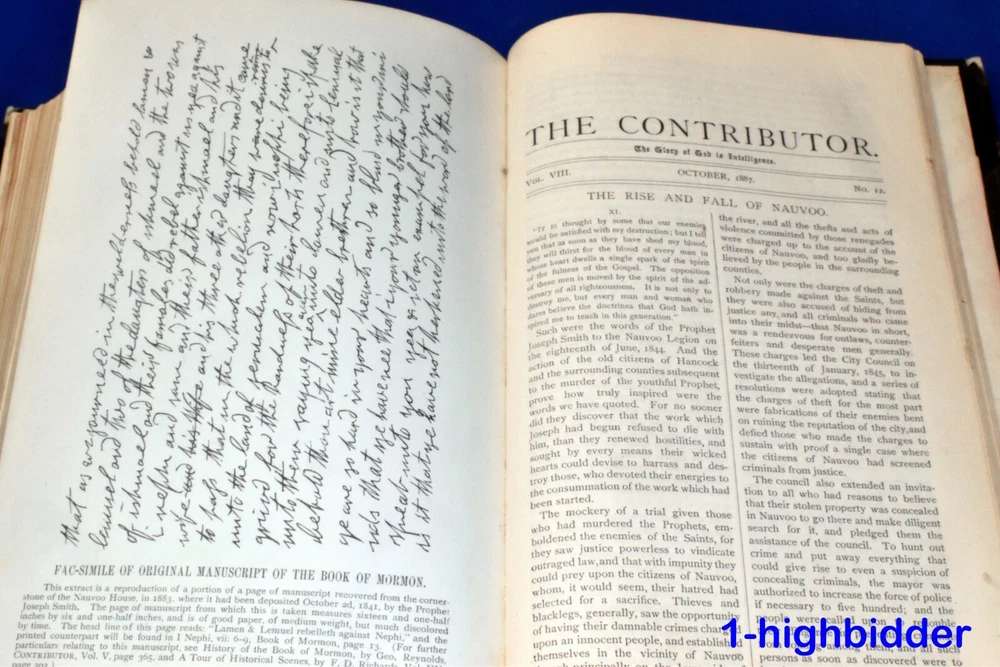 that as we journeyed in the wilderness behold laman &
lemuel and two of the daughters of ishmael and the two sons
of ishmael and their families did rebel against us yea against
i nephi and sam and their father ishmael and his
wife and his three other daughters and it came
to pass that in the which rebellion they were desirous to return
unto the land of jerusalem and now i nephi being
grieved for the hardness of their harts therefore i spake
unto them saying yea unto laman and unto lemuel
behold thou art mine elder brethren and how is it that
ye are so hard in your hearts and so blind in your mi
nds that ye have need that i your younger brother should
speak unto you yea and set an exampel for you how
is it that ye have not harkened unto the word of the lord
FAC-SIMILE OF ORIGINAL MANUSCRIPT OF THE BOOK OF MORMON.
This extract is a reproduction of a portion of a page of manuscript recovered from the corner-
stone of the Nauvoo House, in 1883, where it had been deposited October 2d, 1841, by the Prophet
Joseph Smith. The page of manuscript from which this is taken measures sixteen and one-half
inches by six and one-half inches, and is of good paper, of medium weight, but much discolored
by time. The head line of this page reads: "Lamen & Lemuel rebelleth against Nephi," and the
printed counterpart will be found in I Nephi, vii: 6-9, Book of Mormon, page 13. (For further
particulars relating to this manuscript, see History of the Book of Mormon, by Geo. Reynolds,
CONTRIBUTOR, Vol. V, page 365, and A Tour of Historical Scenes, by F. D. Richards,
page 302.)
THE CONTRIBUTOR.
The Glory of God is Intelligence.
VOL. VIII. OCTOBER, 1887. No. 12.
THE RISE AND FALL OF NAUVOO.
XI.
"IT is thought by some that our enemies
would be satisfied with my destruction; but I tell
you that as soon as they have shed my blood,
they will thirst for the blood of every man in
whose heart dwells a single spark of the spirit
of the fulness of the Gospel. The opposition
of these men is moved by the spirit of the ad-
versary of all righteousness. It is not only to
destroy me, but every man and woman who
dares believe the doctrines that God hath in-
spired me to teach in this generation."
Such were the words of the Prophet
Joseph Smith to the Nauvoo Legion on
the eighteenth of June, 1844. And the
action of the old citizens of Hancock
and the surrounding counties subsequent
to the murder of the youthful Prophet,
prove how truly inspired were the
words we have quoted. For no sooner
did they discover that the work which
Joseph had begun refused to die with
him, than they renewed hostilities, and
sought by every means their wicked
hearts could devise to harrass and des-
troy those, who devoted their energies to
the consummation of the work which had
been started.
The mockery of a trial given those
who had murdered the Prophets, em-
boldened the enemies of the Saints, for
they saw justice powerless to vindicate
outraged law, and that with impunity they
could prey upon the citizens of Nauvoo,
whom, it would seem, their hatred had
selected for a sacrifice. Thieves and
blacklegs, generally, saw the opportunity
of having their damnable crimes charged
upon an innocent people, and established
themselves in the vicinity of Nauvoo
the river, and all the thefts and acts of
violence committed by those renegades
were charged up to the account of the
citizens of Nauvoo, and too gladly be-
lieved by the people in the surrounding
counties.
Not only were the charges of theft and
robbery made against the Saints, but
they were also accused of hiding from
justice any and all criminals who came
into their midst—that Nauvoo in short,
was a rendezvous for outlaws, counter-
feiters and desperate men generally.
These charges led the City Council on
the thirteenth of January, 1845, to in-
vestigate the allegations, and a series of
resolutions were adopted stating that
the charges of theft for the most part
were fabrications of their enemies bent
on ruining the reputation of the city, and
defied those who made the charges to
sustain with proof a single case where
the citizens of Nauvoo had screened
criminals from justice.
The council also extended an invita-
tion to all who had reasons to believe
that their stolen property was concealed
in Nauvoo to go there and make diligent
search for it, and pledged them the
assistance of the council. To hunt out
crime and put away everything that
could give rise to even a suspicion of
concealing criminals, the mayor was
authorized to increase the force of police
if necessary to five hundred; and the
people were called upon
persons as soon as discovered were to
1-highbidder